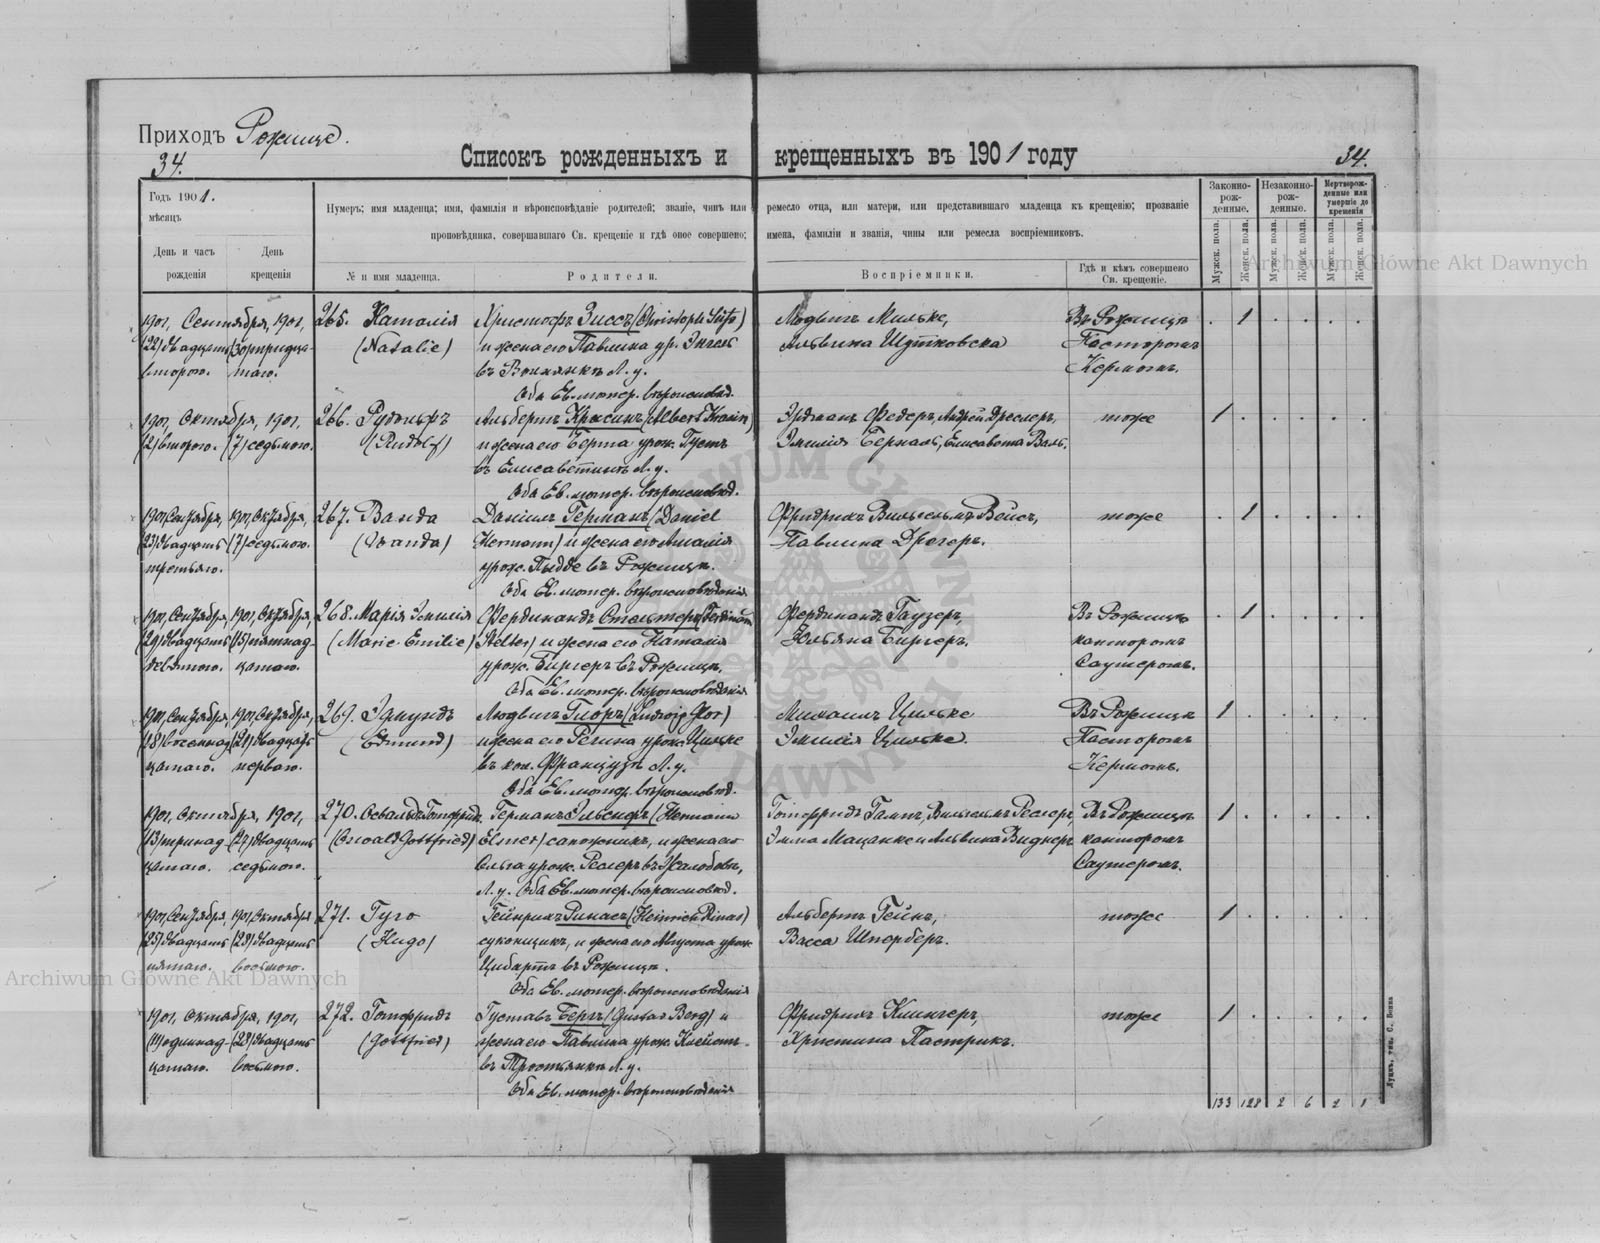 Приходъ Рожище.
34.
Списокъ рожденныхъ и крещенныхъ въ 1901 году
34.
Годъ 1901.
мѣсяцъ
День и часъ рожденія
День крещенія
Нумеръ; имя младенца; имя, фамилія и вѣроисповѣданіе родителей; званіе, чинъ или ремесло отца, или матери, или представившаго младенца къ крещенію; прозваніе
проповѣдника, совершавшаго Св. крещеніе и гдѣ оное совершено; имена, фамиліи и званія, чины или ремесла воспріемниковъ.
№ и имя младенца.
Родители.
Воспріемники.
Гдѣ и кѣмъ совершено Св. крещеніе.
Законно-рож-денные.
Незаконно-рож-денные.
Мертворож-денные или умершіе до крещенія
Мужск. пола.
Женск. пола.
Мужск. пола.
Женск. пола.
Мужск. пола.
Женск. пола.
1901, Сентября, 1901, 265. Наталія Христофъ Зиссъ (Christoph Süss) Людвигъ Мильке, Въ Рожищѣ . 1 . . . .
(22) двадцать (30) тридца- (Natalie) и жена его Павлина ур. Энгель Альвина Шутковска Пасторомъ
второго. таго. въ Волнянкѣ Л. у. Кермомъ.
Оба Ев. лютер. вѣроисповѣд.
1901, Октября, 1901, 266. Рудольфъ Альбертъ Красинъ (Albert Krasin) Эрдманъ Федеръ, Андрей Дреслеръ, тоже 1 . . . . .
(2) второго. (7) седьмого. (Rudolf) и жена его Берта урож. Густъ Эмилія Берналь, Елисавета Валь.
въ Елисаветинъ Л. у.
Оба Ев. лютер. вѣроисповѣд.
1901, Сентября, 1901, Октября, 267. Ванда Даніилъ Германъ (Daniel Фридрихъ Вильгельмъ Вейсъ, тоже . 1 . . . .
(23) двадцать (7) седьмого. (Wanda) Hermann) и жена его Амалія Павлина Дрегеръ.
третьяго. урож. Пыдде въ Рожищѣ.
Оба Ев. лютер. вѣроисповѣданія
1901, Сентября, 1901, Октября, 268. Марія Эмилія Фердинандъ Стельтеръ (Ferdinand Фердинандъ Гаузеръ, Въ Рожищѣ . 1 . . . .
(29) двадцать (15) пятнад- (Marie Emilie) Stelter) и жена его Наталія Юльяна Биргеръ. канторомъ
девятого. цатаго. урож. Биргеръ въ Рожищѣ. Саутеромъ.
Оба Ев. лютер. вѣроисповѣданія
1901, Сентября, 1901, Октября, 269. Эдмундъ Людвигъ Глоръ (Ludwig Glor) Михаилъ Цильке Въ Рожищѣ 1 . . . . .
(18) восемнад- (21) двадцать (Edmund) и жена его Регина урож. Цильке Эмилія Цильке. Пасторомъ
цатаго. перваго. въ кол. Французъ Л. у. Кермомъ.
Оба Ев. лютер. вѣроисповѣд.
1901, Октября, 1901, 270. Освальдъ Готфридъ. Германъ Эльснеръ (Hermann Готфридъ Гампъ, Вильгельмъ Реслеръ, Въ Рожищѣ 1 . . . . .
(13) тринад- (27) двадцать (Oswald Gottfried) Elsner) сапожникъ, и жена его Эмма Мацанке и Альвина Виднеръ. канторомъ
цатаго. седьмого. Ольга урож. Реслеръ въ Жалобовѣ, Саутеромъ.
Л. у. Оба Ев. лютер. вѣроисповѣд.
1901, Сентября, 1901, Октября 271. Гуго Гейнрихъ Ринасъ (Heinrich Rinas) Альбертъ Гейнъ, тоже 1 . . . . .
(25) двадцать (28) двадцать (Hugo) суконщикъ, и жена его Августа урож. Васса Шперберъ.
пятаго. восьмого. Цибартъ въ Рожищѣ.
Оба Ев. лютер. вѣроисповѣданія
1901, Октября, 1901, 272. Готфридъ Густавъ Бергъ (Gustav Berg) и Фридрихъ Клингеръ, тоже 1 . . . . .
(11) одиннад- (28) двадцать (Gottfried) жена его Павлина урож. Клейстъ Христина Пастрикъ.
цатаго. восьмого. въ Тростянкѣ Л. у.
Оба Ев. лютер. вѣроисповѣданія
133 128 2 6 2 1
Archiwum Główne Akt Dawnych
Archiwum Główne Akt Dawnych